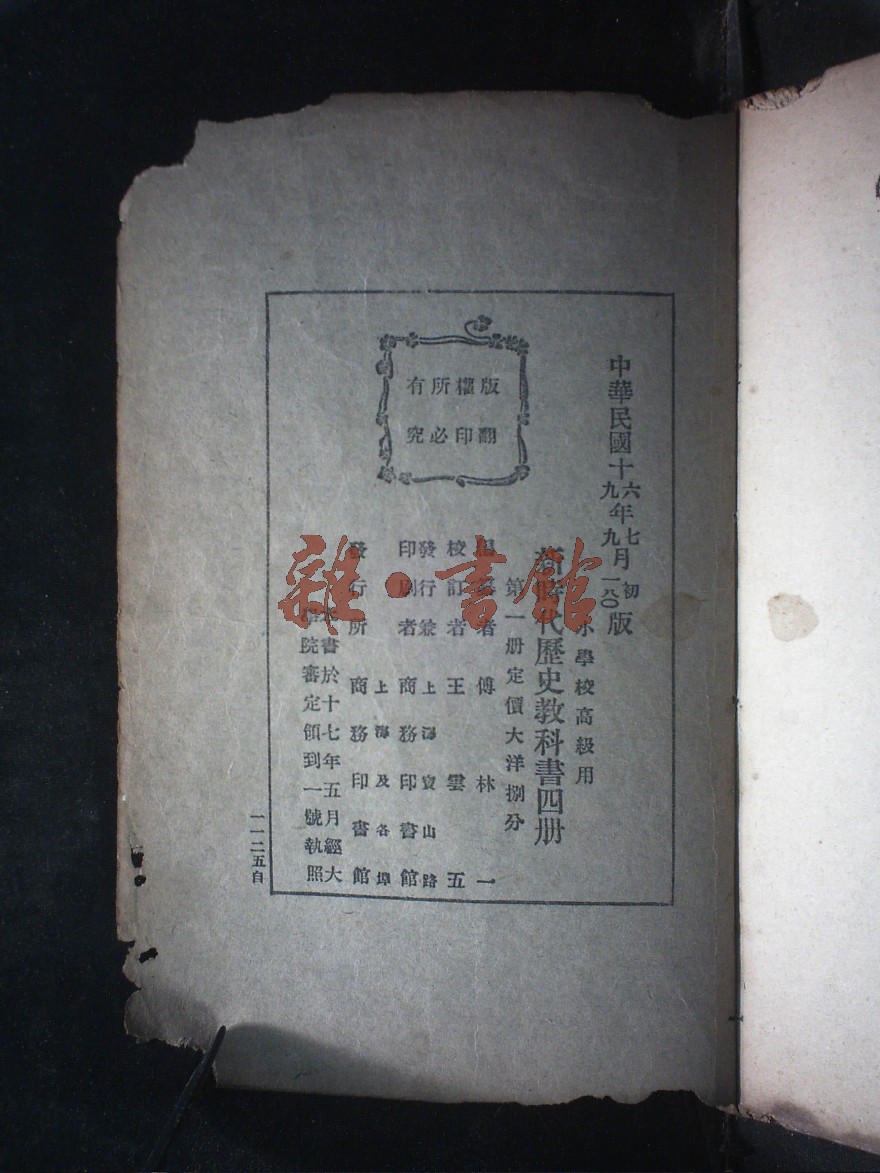 版權所有
翻印必究
中華民國十六年七月初版
九年九月一八〇
小學校高級用
新時代歷史教科書四册
第一册定價大洋捌分
編纂者 傅林一
校訂者 王雲五
發行兼 上海寶山路
印刷者 商務印書館
發行所 上海及各埠
商務印書館
書於十七年五月經大
學院審定領到一號執照
一一二五自
雜·書館